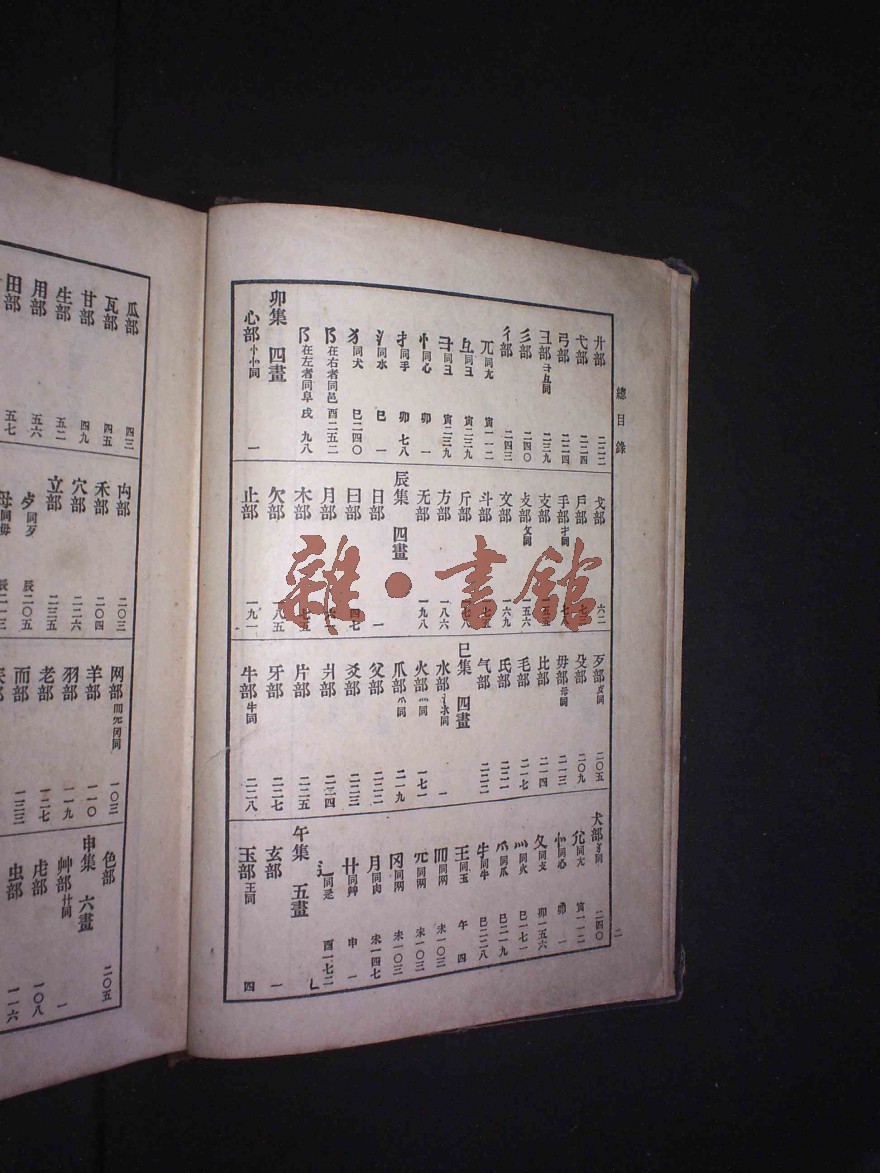 總目錄
廾部 二二二
弋部 二二四
弓部 二二四
彐部彑彐同 二三九
彡部 二四〇
彳部 二四三
兀同尢 寅一一二
彑同彐 寅二三九
彐同彐 寅二三九
忄同心 卯一
扌同手 卯七八
氵同水 巳一
犭同犬 巳二四〇
阝在右者同邑 酉二五二
阝在左者同阜 戌九八
卯集 四畫
心部忄㣺同 一
戈部 六二
戶部
手部扌同
支部
攴部攵同 一五六
文部 一六九
斗部
斤部
方部 一八六
无部 一九八
辰集 四畫
日部 一
曰部 四七
月部
木部 七五
欠部 一八五
止部 一九一
歹部歺同 二〇五
殳部 二〇九
毋部母同 二一三
比部 二一四
毛部 二一七
氏部 二二一
气部 二二二
巳集 四畫
水部氵氺同 一
火部灬同 一七一
爪部爫同 二一九
父部 二二二
爻部 二二三
爿部 二二四
片部 二二五
牙部 二二七
牛部牜同 二二八
犬部犭同 二四〇
尣同尢 寅一一二
忄同心 卯一
攵同攴 卯一五六
灬同火 巳一七一
爫同爪 巳二一九
牜同牛 巳二二八
王同玉 午四
罒同网 未一〇三
㓁同网 未一〇三
冈同网 未一〇三
月同肉 未一四七
艹同艸 申一
辶同辵 酉一七二
午集 五畫
玄部 一
玉部王同 四
二
瓜部 四三
瓦部 四五
甘部 四九
生部 五二
用部 五六
田部 五七
禸部 二〇三
禾部 二〇四
穴部 二二六
立部 二三五
歺同歹 辰二〇五
母同毋 辰二一三
网部 一〇三
羊部 一一〇
羽部 一一九
老部 一二七
而部 一三三
色部 二〇五
申集 六畫
艸部艹同 一
虍部 一〇八
虫部 一一六
雜·書館